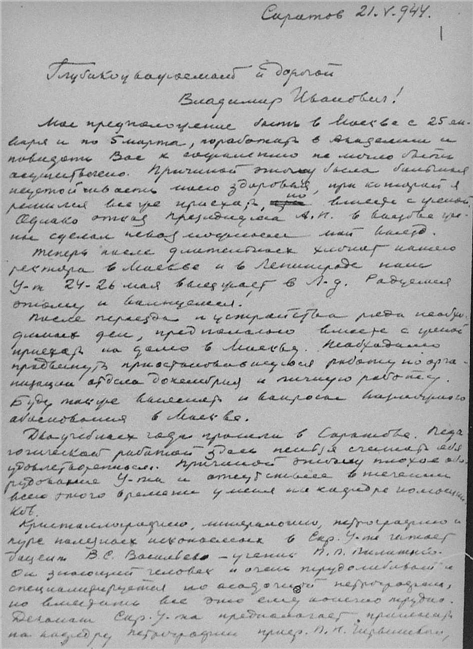 Саратов 21.V.944.
1
Глубокоуважаемый и дорогой
Владимир Иванович!
Мое предположение быть в Москве с 25 ян-
варя и по 5 марта, поработать в Академии и
повидать Вас к сожалению не могло быть
осуществлено. Причиной этому была большая
неустойчивость моего здоровья, при которой я
решился все же приехать, вместе с женой.
Однако отказ Президиума А.Н. в вызове же-
ны сделал невозможным мой выезд.
Теперь после длительных хлопот нашего
ректора в Москве и в Ленинграде наш
У-т 24-26 мая выезжает в Л-д. Радуемся
этому и волнуемся.
После переезда и устройства ряда необхо-
димых дел, предполагаю вместе с женой
приехать на дело в Москву. Необходимо
продвинуть приостановившуюся работу по орга-
низации отдела докембрия и личную работу.
Буду также
обоснования в Москве.
Два учебных года прошли в Саратове. Педа-
гогической работой здесь нельзя считать себя
удовлетворенным. Причиной этому плохое обо-
рудование У-та и отсутствие в течении
всего этого времени у меня на кафедре помощни-
ков.
Кристаллографию, минералогию, петрографию и
курс полезных ископаемых в Сар. У-те читает
доцент В.С. Васильев - ученик
Он знающий человек и очень трудолюбивый и
специализируется по осадочной петрографии,
но вместить все это ему конечно трудно.
Деканат Сар. У-та предполагает пригласить
на кафедру петрографии проф.